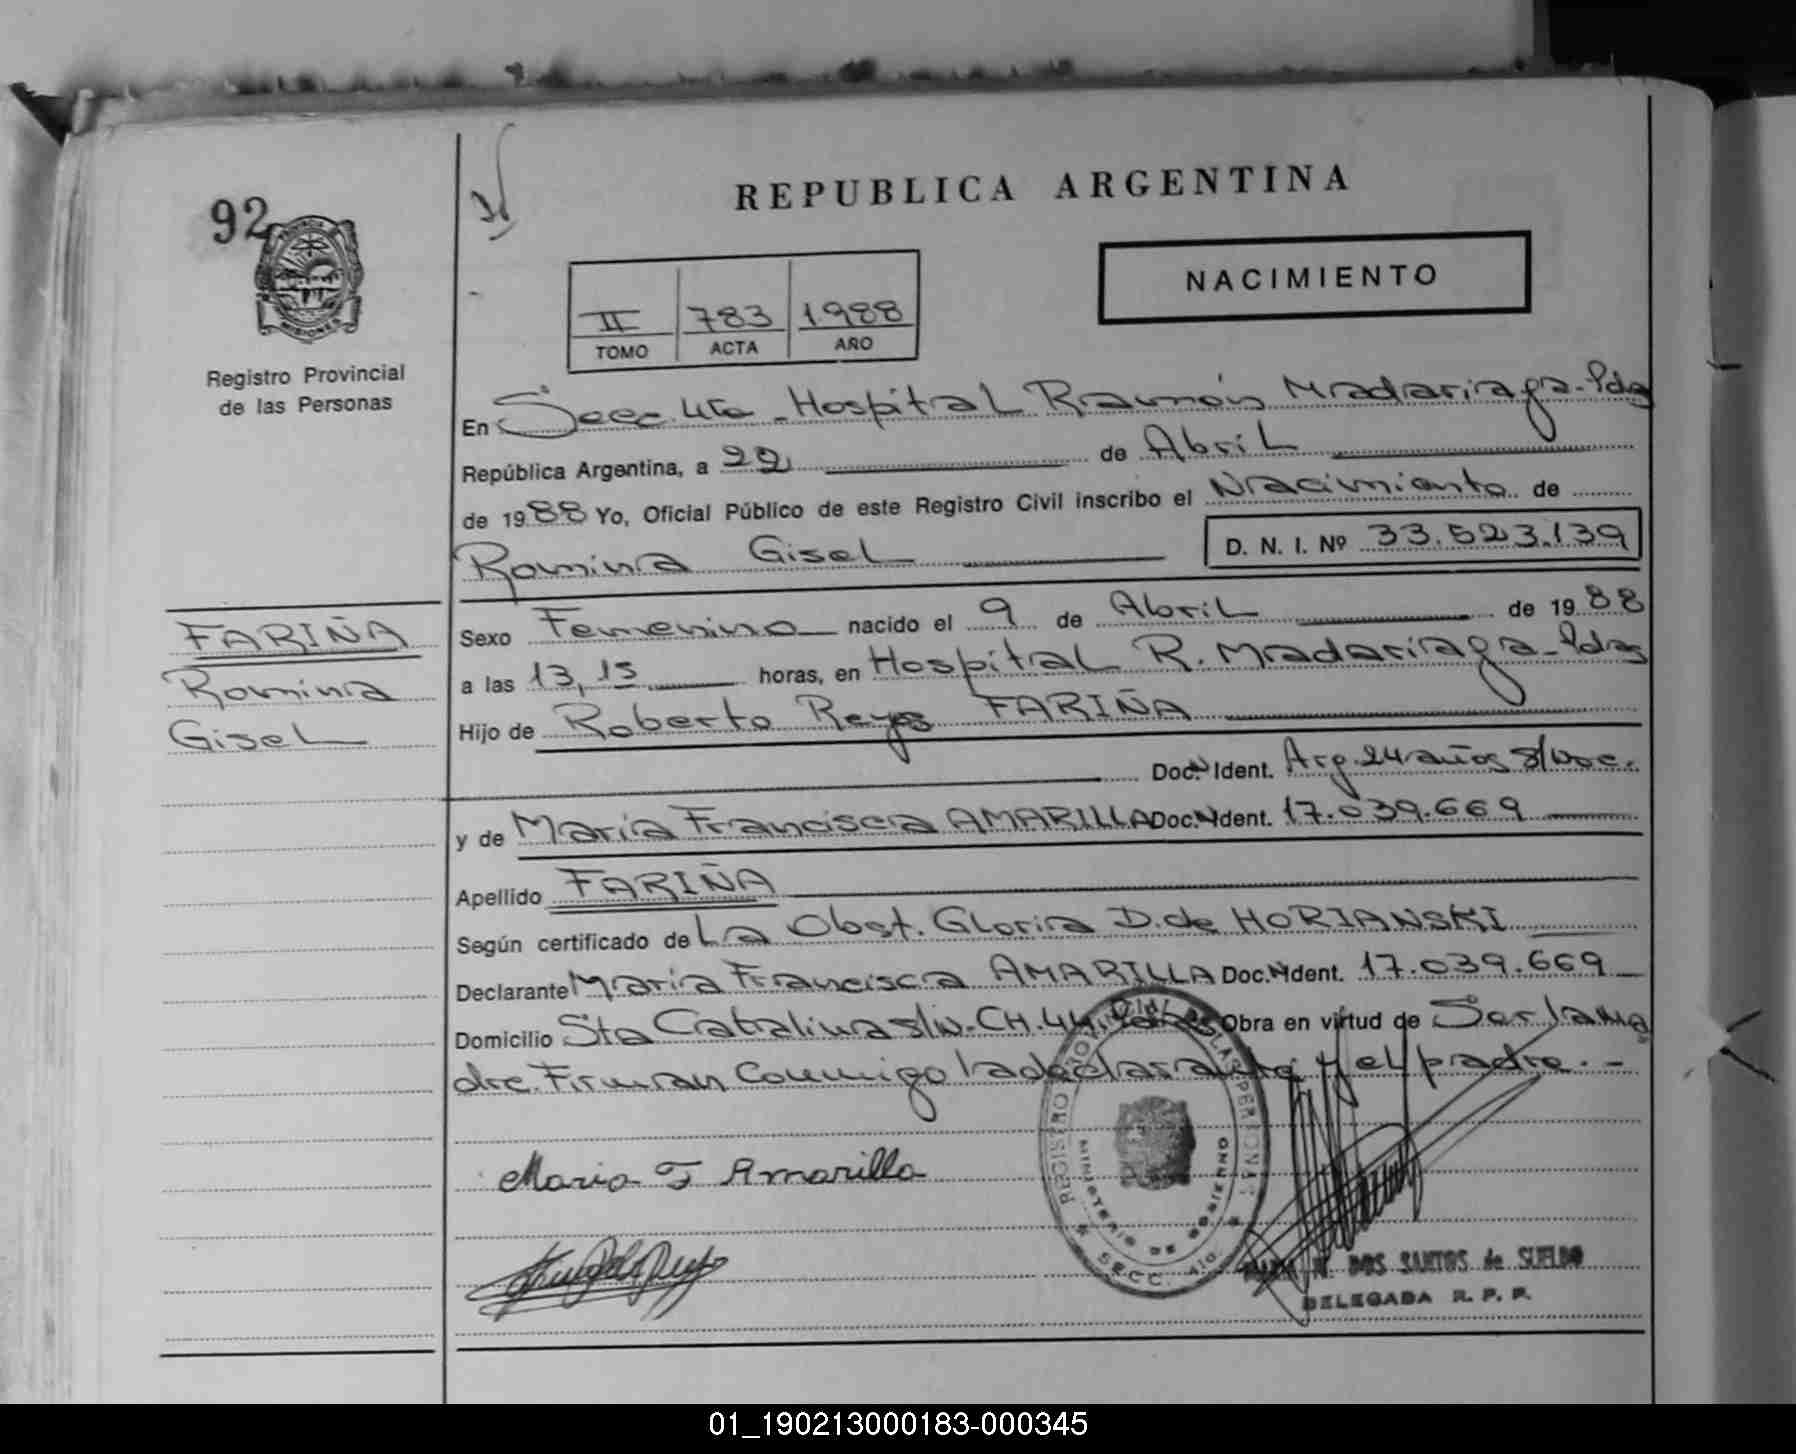 92
REPUBLICA ARGENTINA
PROVINCIA
MISIONES
Registro Provincial
de las Personas
II 783 1.988
TOMO ACTA AÑO
NACIMIENTO
En Secc. 4ta - Hospital Ramón Madariaga - Pdas
República Argentina, a 22 de Abril
de 1988 Yo, Oficial Público de este Registro Civil inscribo el Nacimiento de
Romina Gisel D. N. I. Nº 33.523.139
FARIÑA
Romina
Gisel
Sexo Femenino nacido el 9 de Abril de 1988
a las 13,15 horas, en Hospital R. Madariaga - Pdas
Hijo de Roberto Reyes FARIÑA
Doc. Ident. Arg. 24 años S/Doc.
y de María Francisca AMARILLA Doc. Ident. 17.039.669
Apellido FARIÑA
Según certificado de La Obst. Gloria D. de HORIANSKI
Declarante María Francisca AMARILLA Doc. Ident. 17.039.669
Domicilio Sta Catalina s/n. CH. 44. Obra en virtud de Ser la ma
dre. Firman Conmigo la declarante y el padre. -
Maria F Amarilla
REGISTRO PROVINCIAL DE LAS PERSONAS
MINISTERIO DE GOBIERNO
SECC. 4ta.
N. DOS SANTOS de SUELDO
DELEGADA R. P. P.
01_190213000183-000345